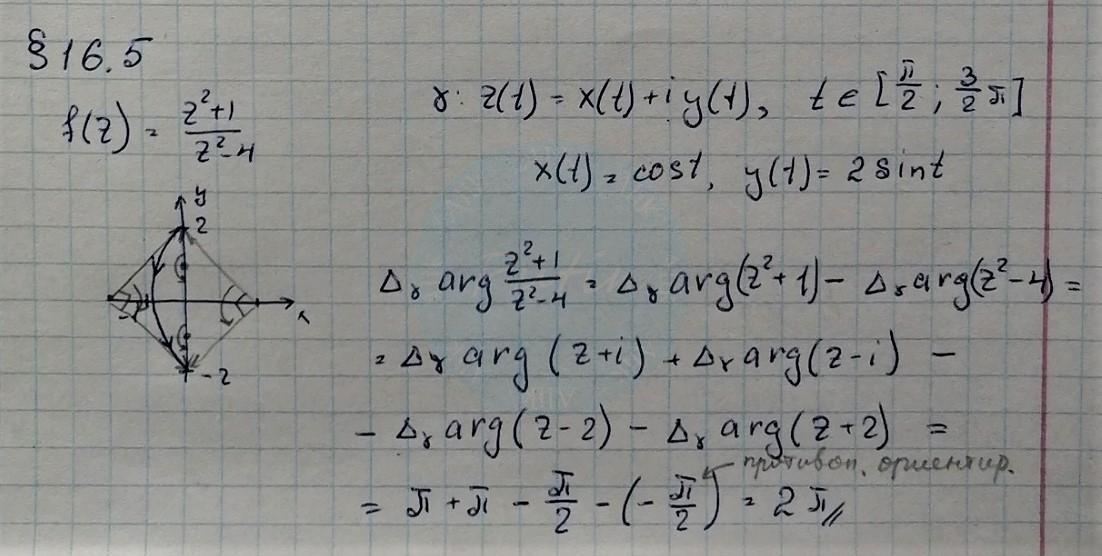 § 16.5
f(z) = (z²+1)/(z²-4)
γ: z(t) = x(t) + i y(t), t ∈ [π/2 ; 3/2 π]
x(t) = cost, y(t) = 2 sint
y
2
x
-2
Δγ arg (z²+1)/(z²-4) = Δγ arg(z²+1) - Δγ arg(z²-4) =
= Δγ arg (z+i) + Δγ arg(z-i) -
- Δγ arg(z-2) - Δγ arg(z+2) =
противоп. ориентир.
= π + π - π/2 - (-π/2) = 2π//